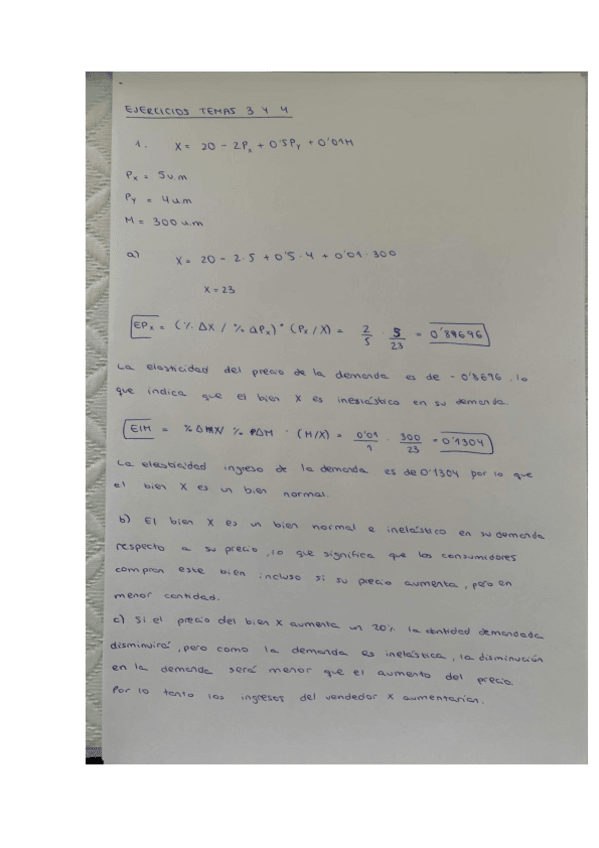 EJERCICIOS TEMAS 3 Y 4
1. X = 20 - 2Px + 0'5Py + 0'01M
Px = 5 u.m
Py = 4 u.m
M = 300 u.m
a) X = 20 - 2·5 + 0'5·4 + 0'01·300
X = 23
EPx = (% ΔX / % ΔPx) · (Px / X) = 2/5 · 5/23 = 0'89696
La elasticidad del precio de la demanda es de - 0'8696, lo
que indica que el bien X es inelástico en su demanda.
EIM = % ΔX / % ΔM · (M/X) = 0'01/1 · 300/23 = 0'1304
La elasticidad ingreso de la demanda es de 0'1304 por lo que
el bien X es un bien normal.
b) El bien X es un bien normal e inelástico en su demanda
respecto a su precio, lo que significa que los consumidores
compran este bien incluso si su precio aumenta, pero en
menor cantidad.
c) Si el precio del bien X aumenta un 20% la cantidad demandada
disminuirá, pero como la demanda es inelástica, la disminución
en la demanda será menor que el aumento del precio.
Por lo tanto los ingresos del vendedor X aumentarían.